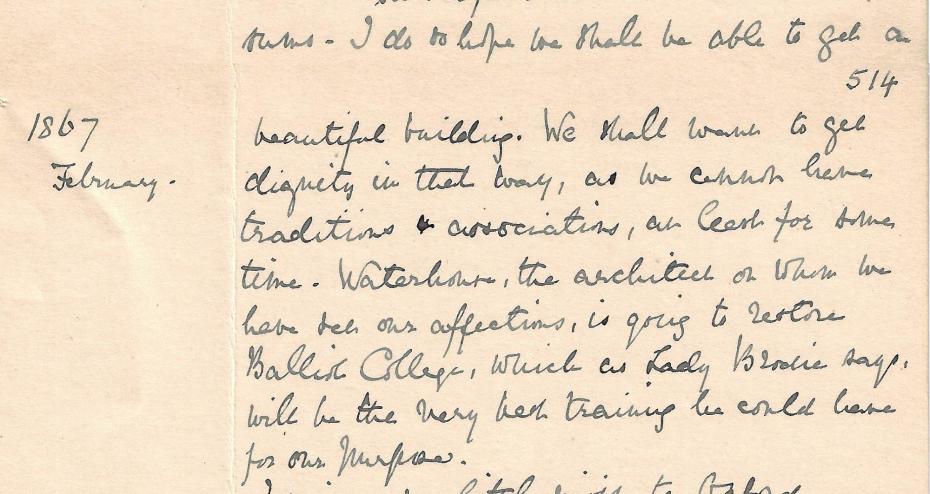 sums - I do so hope we shall be able to get a
514
1867
beautiful building. We shall want to get
February.
dignity in that way, as we cannot have
traditions & associations, at least for some
time. Waterhouse, the architect on whom we
have set our affections, is going to restore
Balliol College, which as Lady Brodie says,
will be the very best training he could have
for our purpose.
visit to Oxford